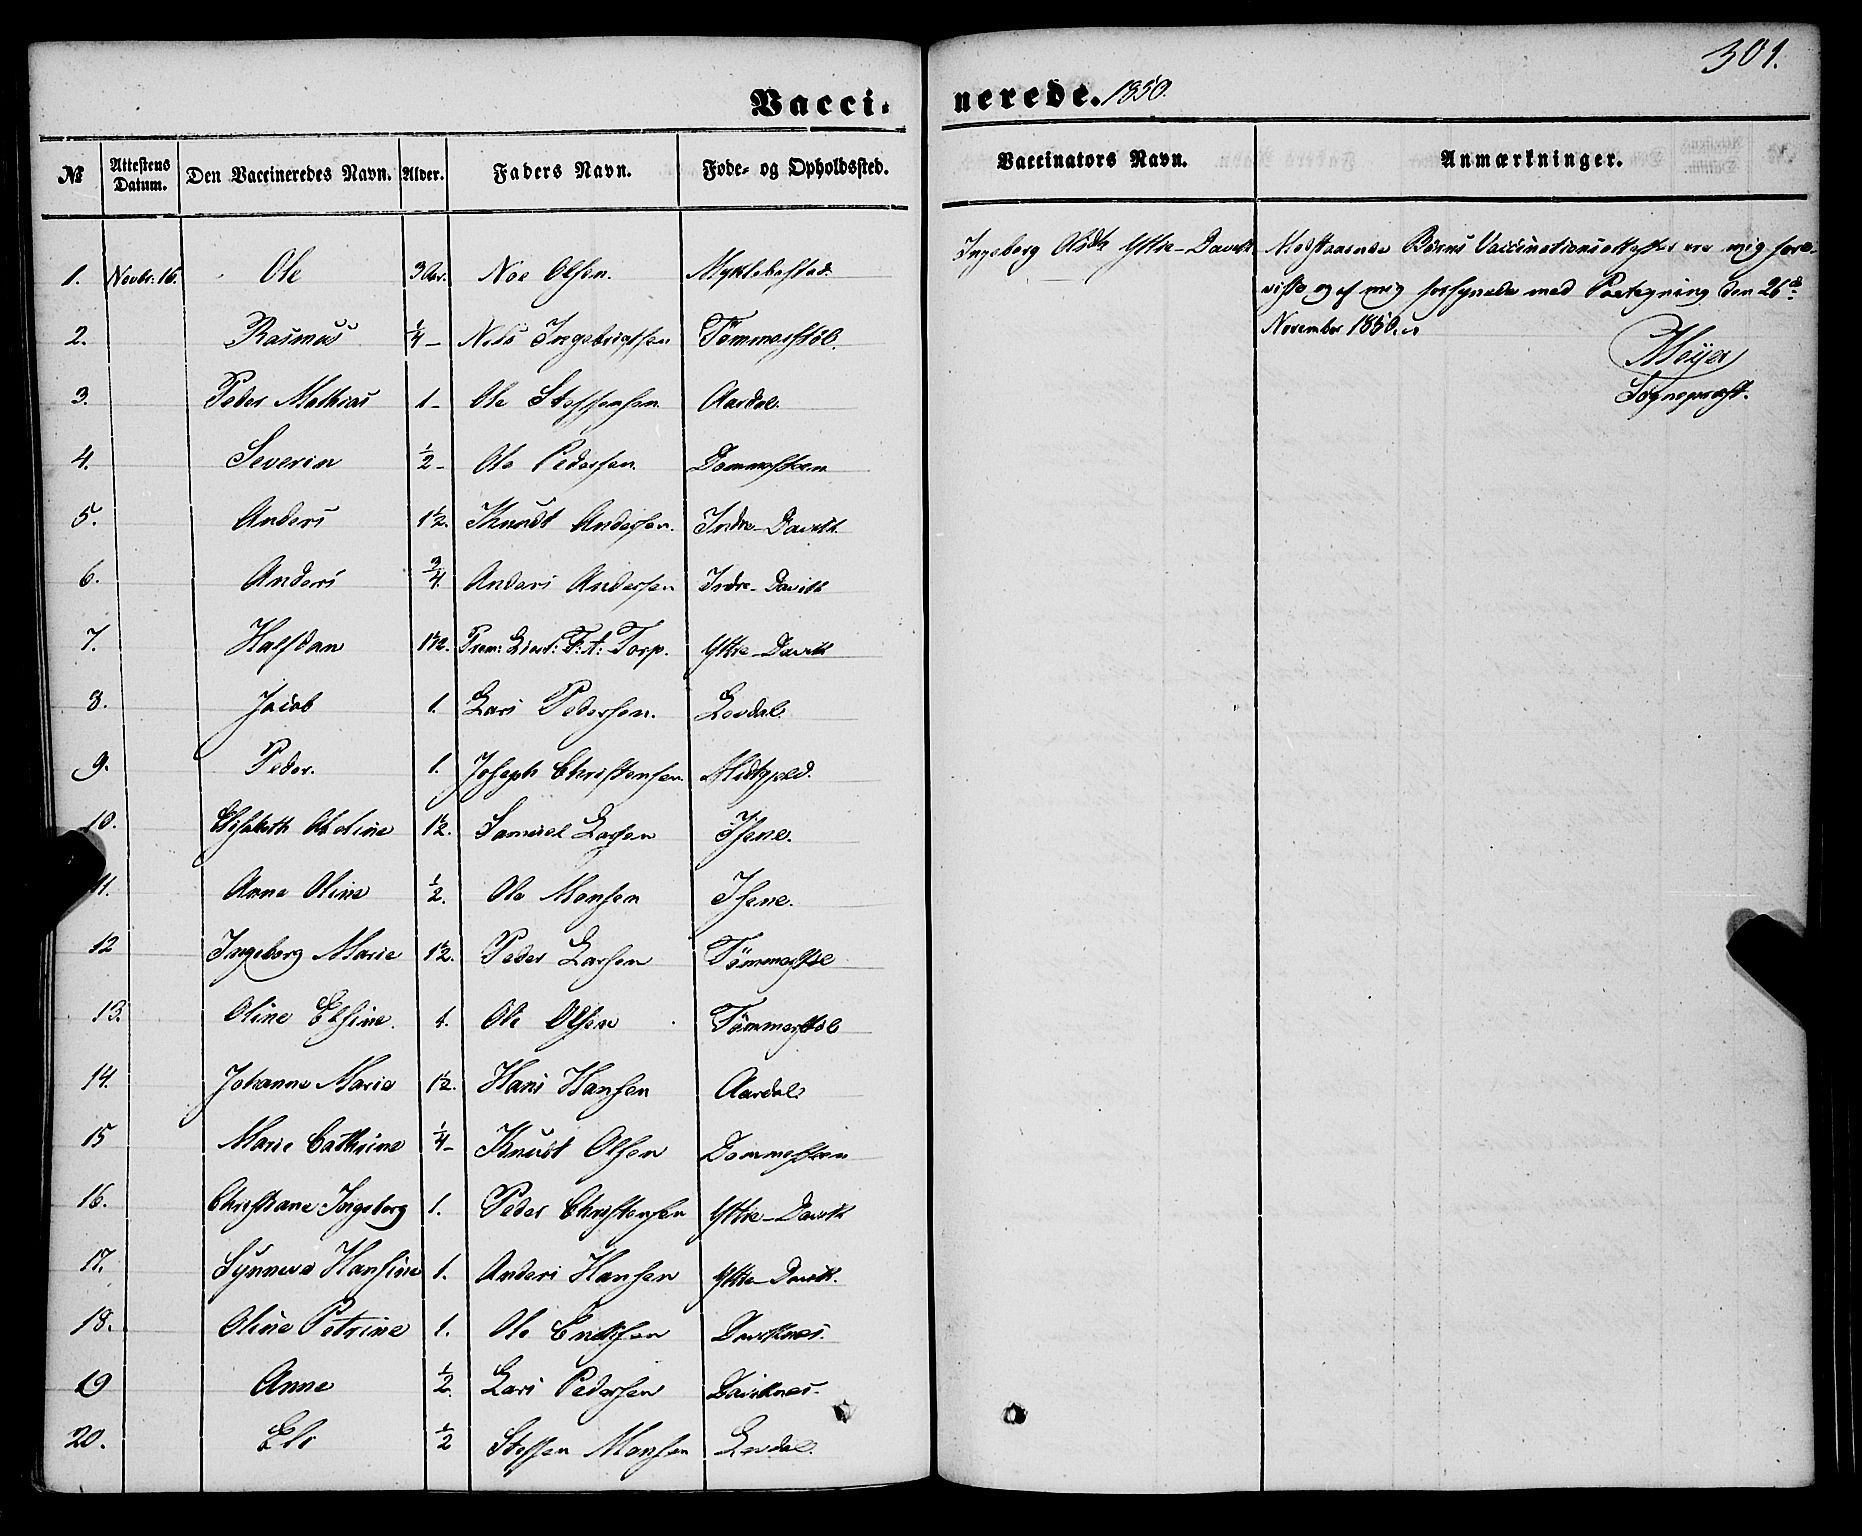 301.
Vacci- nerede. 1850.
№ Attestens Datum. Den Vaccineredes Navn. Alder. Faders Navn. Føde- og Opholdssted. Vaccinators Navn. Anmærkninger.
1. Novbr. 16. Ole 3 Aar. Noe Olsen. Myklebostad. Ingeborg Ytre-Davik Medstaaende Børns Vaccinationsattester ere mig fore-
viste og af mig forsynede med Paategning den 26de
2. Rasmus 1/4 - Nils Ingebrigtsen Tømmerstøl. November 1850.
Meyer
3. Peder Mathias 1 - Ole Steffensen Aardal. Sognepræst.
4. Severin 1/2 - Ole Pedersen. Dommesteen
5. Anders 1 1/2. Knudt Andersen. Indre-Davik
6. Anders 3/4. Anders Andersen Indre-Davik
7. Halfdan 1 1/2. Prem: Lieut: F: A: Torp. Ytre-Davik
8. Jacob 1. Lars Pedersen. Levdal.
9. Peder. 1. Joseph Christensen. Midtgaed.
10. Elisabeth Abeline 1 1/2. Samuel Larsen Isene.
11. Anne Oline 1/2. Ole Monsen Isene.
12 Ingeborg Marie 1 1/2. Peder Larsen Tømmerstøl
13. Oline Elsine. 1. Ole Olsen Tømmerstøl
14. Johanne Marie 1 1/2. Hans Hansen Aardal.
15 Marie Cathrine 1/4 - Knudt Olsen Dommesteen
16. Christiane Ingeborg 1. Peder Christensen Ytre-Davik
17. Synneva Hansine 1. Anders Hansen Ytre-Davik.
18. Oline Petrine 1. Ole Ericksen Daviknes.
19 Anne 1/2. Lars Pedersen Daviknes.
20. Eli 1/2 Steffen Monsen Levdal.